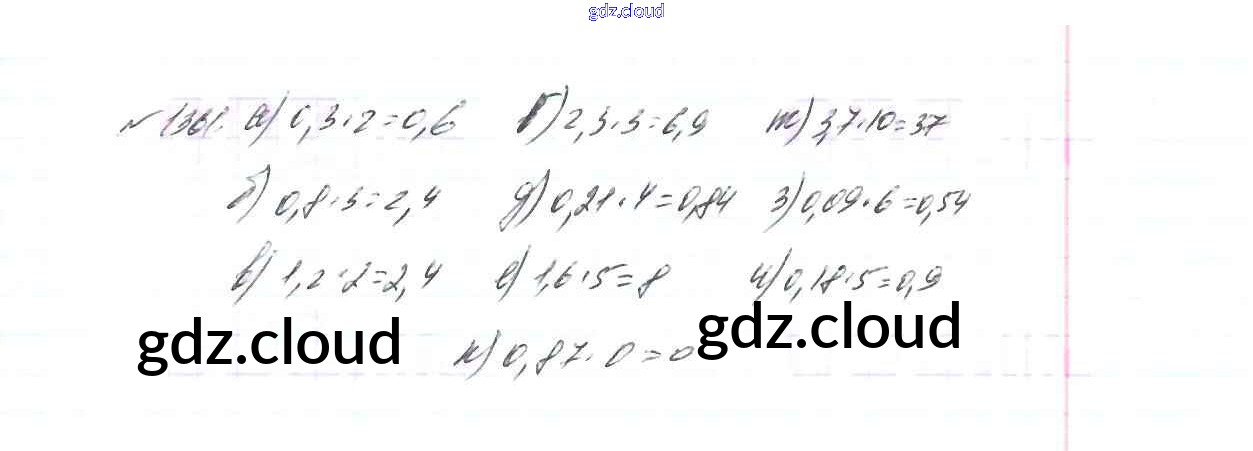 gdz.cloud
№1361. а) 0,3·2=0,6 г) 2,3·3=6,9 ж) 3,7·10=37
б) 0,8·3=2,4 д) 0,21·4=0,84 з) 0,09·6=0,54
в) 1,2·2=2,4 е) 1,6·5=8 и) 0,18·5=0,9
gdz.cloud к) 0,87·0=0 gdz.cloud